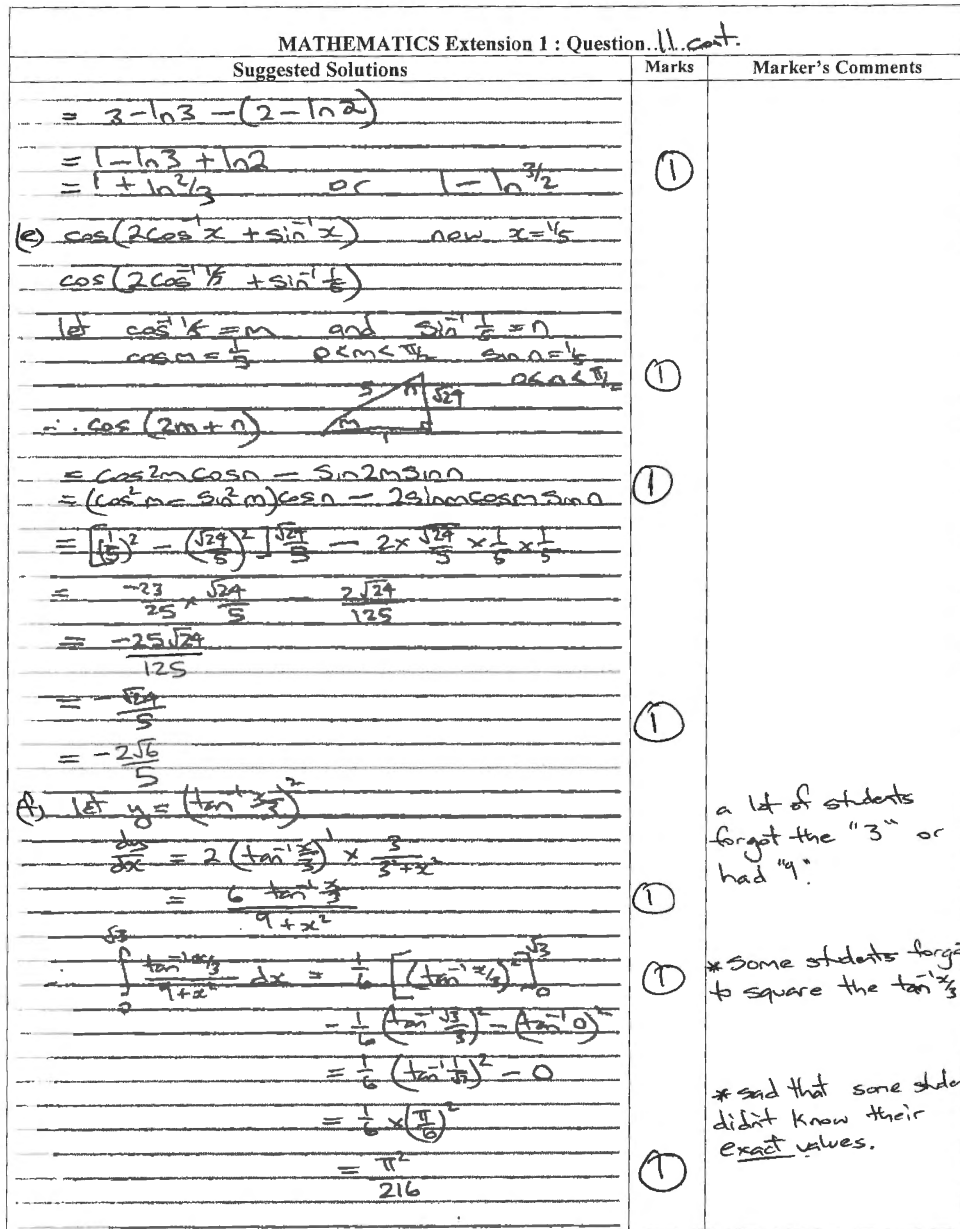 MATHEMATICS Extension 1 : Question..11..cont.
Suggested Solutions
Marks
Marker's Comments
= 3 - ln3 - (2 - ln2)
= 1 - ln3 + ln2
= 1 + ln 2/3 or 1 - ln 3/2
①
(e) cos(2cos⁻¹x + sin⁻¹x) now x = 1/5
cos(2cos⁻¹ 1/5 + sin⁻¹ 1/5)
let cos⁻¹ 1/5 = m and sin⁻¹ 1/5 = n
cos m = 1/5 0<m<π/2 sin n = 1/5
0<n<π/2
①
5 n √24
m 1
∴ cos (2m + n)
= cos2m cosn - sin2m sinn
= (cos²m - sin²m)cosn - 2sinm cosm sinn
①
= [(1/5)² - (√24/5)²] √24/5 - 2 × √24/5 × 1/5 × 1/5
= -23/25 × √24/5 - 2√24/125
= -25√24/125
= -√24/5
①
= -2√6/5
(f) let y = (tan⁻¹ x/3)²
dy/dx = 2 (tan⁻¹ x/3)¹ × 3/(3²+x²)
= 6 tan⁻¹ x/3 / (9 + x²)
①
a lot of students
forgot the "3" or
had "9".
∴ ∫₀^√3 tan⁻¹ x/3 / (9 + x²) dx = 1/6 [(tan⁻¹ x/3)²]₀^√3
①
* Some students forgo
to square the tan⁻¹ x/3
= 1/6 (tan⁻¹ √3/3)² - (tan⁻¹ 0)²
= 1/6 (tan⁻¹ 1/√3)² - 0
= 1/6 × (π/6)²
* sad that some stude
didn't know their
exact values.
= π²/216
①